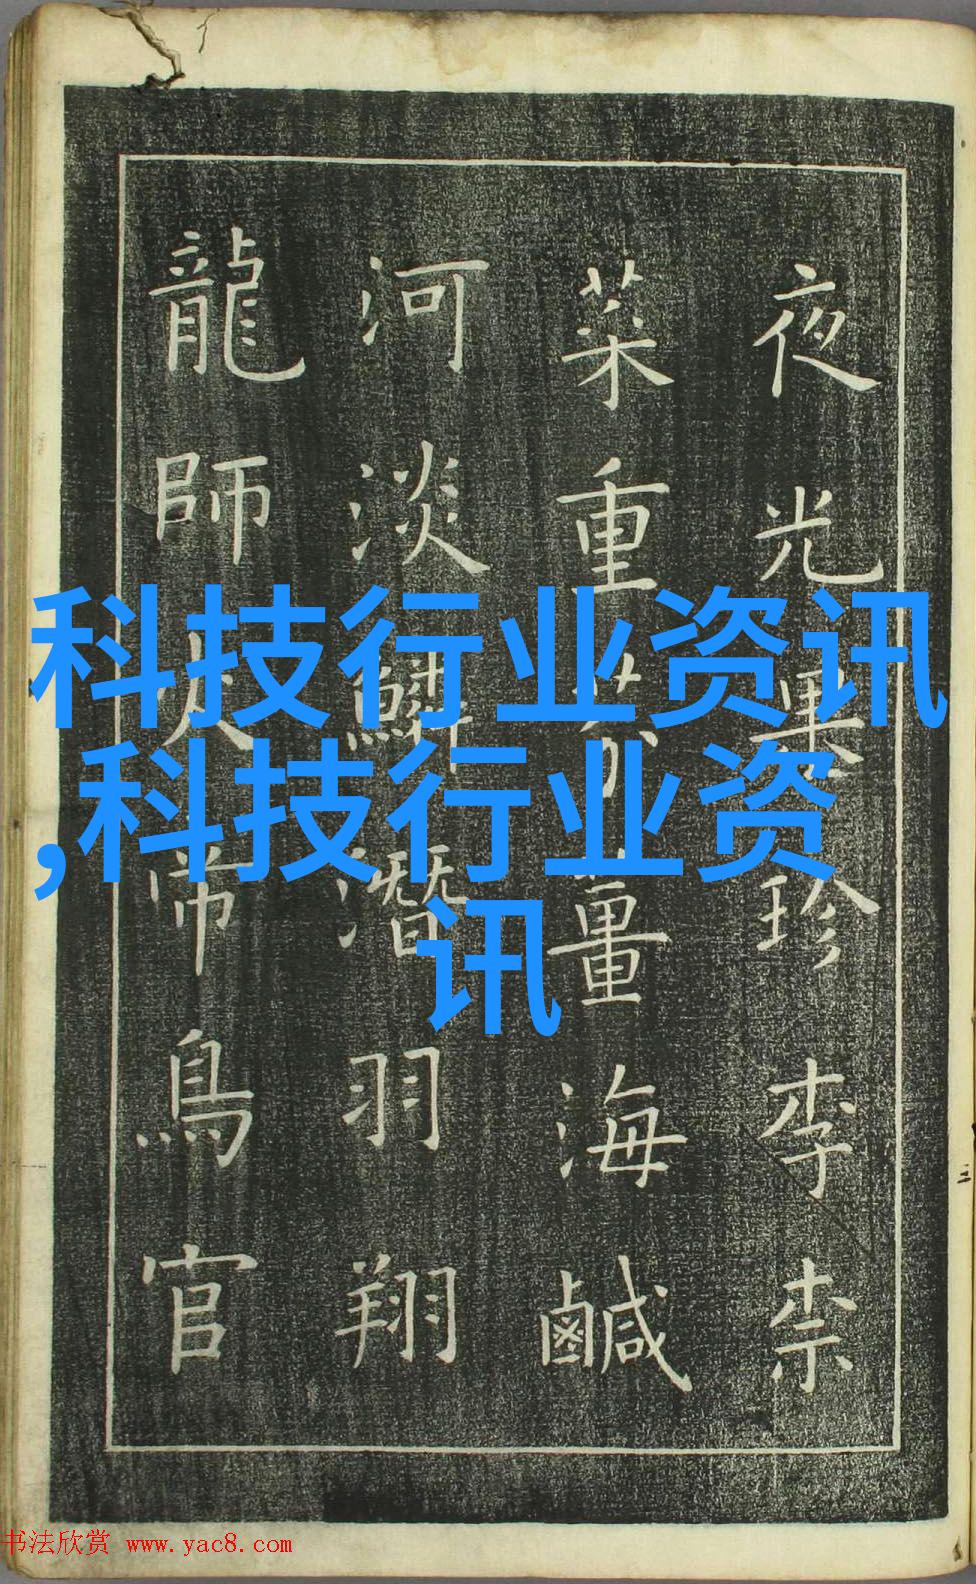 夜光果珍李柰
菜重芥薑海鹹
河淡鱗潛羽翔
龍師火帝鳥官
科技行业资讯
,科技行业资
讯
书法欣赏 www.yac8.com